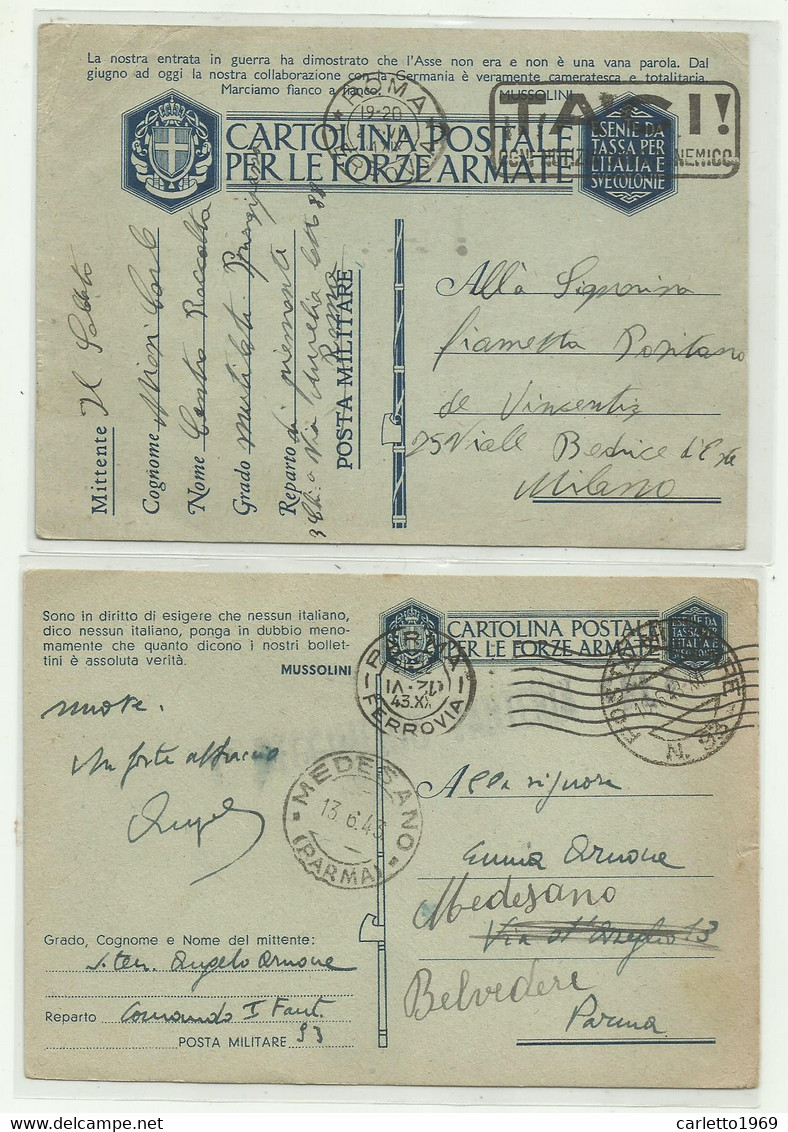 La nostra entrata in guerra ha dimostrato che l'Asse non era e non è una vana parola. Dal
giugno ad oggi la nostra collaborazione con la Germania è veramente cameratesca e totalitaria.
Marciamo fianco a fianco.
MUSSOLINI
ROMA
19-20
TACI!
NEMICO
CARTOLINA POSTALE
PER LE FORZE ARMATE
ESENTE DA
TASSA PER
L'ITALIA E
SVE COLONIE
Mittente Il Soldato
Cognome
Nome Centro Raccolta
Grado Mutilati
Reparto di Piemonte
Via Aurelia
Roma
POSTA MILITARE
Alla Signorina
Fiametta Positano
de Vincentiz
25 Viale Beatrice d'Este
Milano
Sono in diritto di esigere che nessun italiano,
dico nessun italiano, ponga in dubbio meno-
mamente che quanto dicono i nostri bollet-
tini è assoluta verità.
MUSSOLINI
CARTOLINA POSTALE
PER LE FORZE ARMATE
ESENTE DA
TASSA PER
L'ITALIA E
PARMA
12.VI
43.XXI
FERROVIA
POSTA MILITARE
N. 93
Un forte abbraccio
Angelo
MEDESANO
13.6.43
(PARMA)
Alla signora
Emma Arnone
Medesano
13
Belvedere
Parma
Grado, Cognome e Nome del mittente:
s. ten. Angelo Arnone
Reparto Comando I Fant.
POSTA MILITARE 93
carletto1969